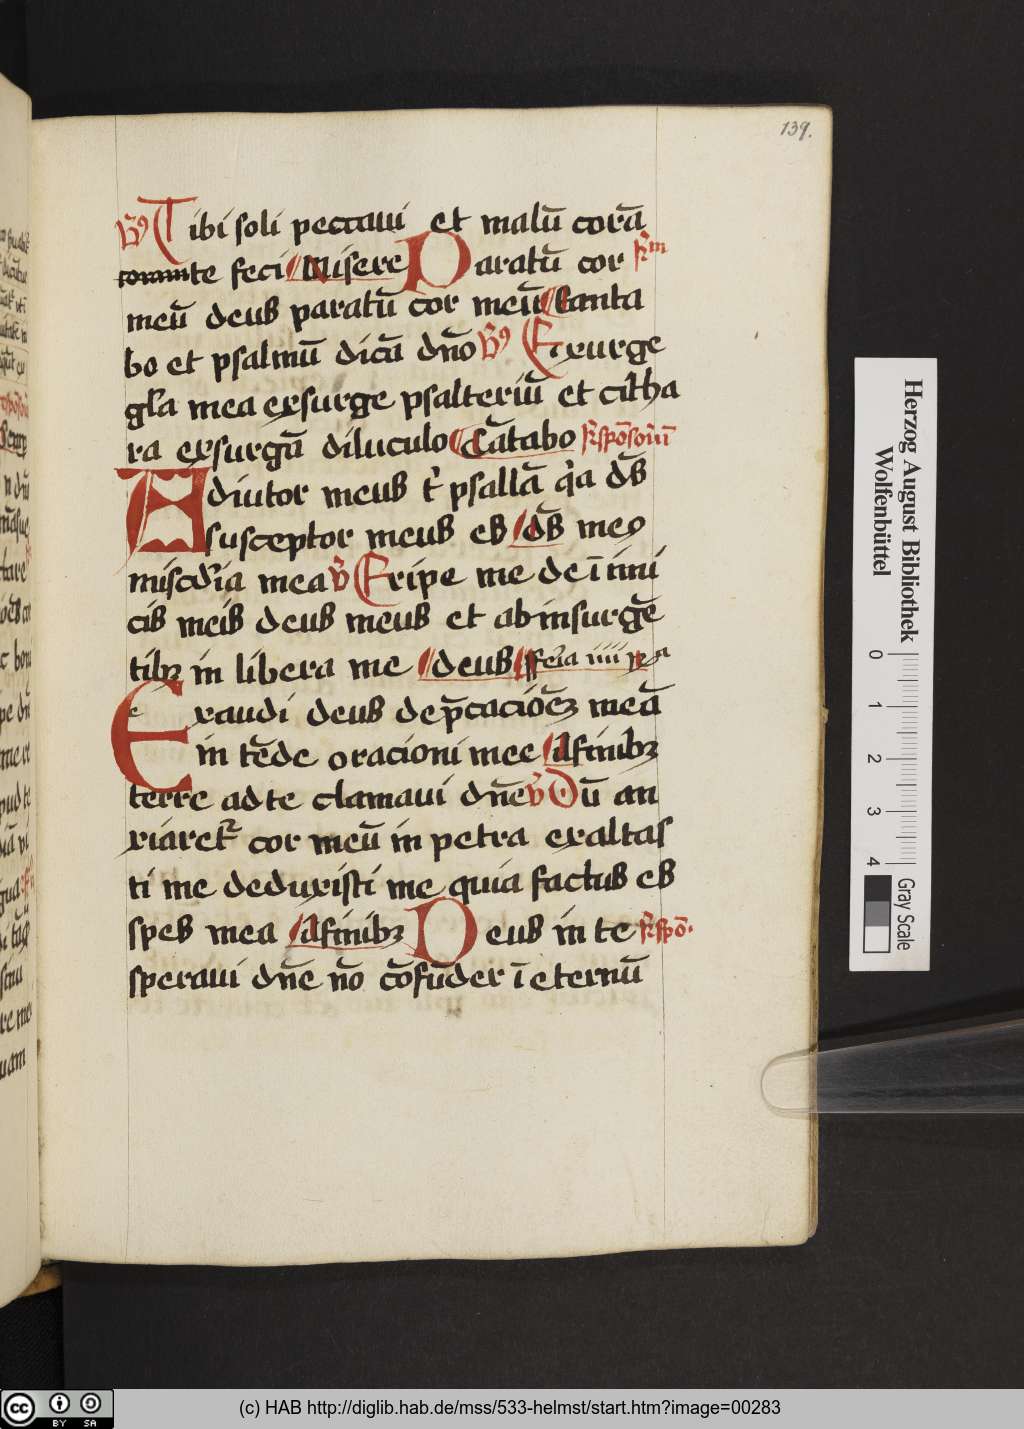 139.
Vs Tibi soli peccaui et malū corā
coram te feci Misere Paratū cor Rm
meū deus paratū cor meū Canta
bo et psalmū dicā dn̄o Vs Exurge
gl̄a mea exsurge psalteriū et cith̄a
ra exsurgā diluculo Cātabo Rspōsoriū
Adiutor meus t̄ psallā q̄a ds̄
susceptor meus es ds̄ meꝰ
miscd̄ia mea V Eripe me de īimi
cis meis deus meus et ab insurgē
tibꝫ in libera me deus fēia iiii
Exaudi deus dep̄cacioēꝫ meā
in tēde oracioni mee Afinibꝫ
terre ad te clamaui dn̄e V Dū an
xiaretr̄ cor meū in petra exaltas
ti me deduxisti me quia factus es
spes mea Afinibꝫ Deus in te Rspō.
speraui dn̄e nō cōfūder ī eternū
Herzog August Bibliothek
Wolfenbüttel
0 1 2 3 4
Gray Scale
cc BY SA
(c) HAB http://diglib.hab.de/mss/533-helmst/start.htm?image=00283